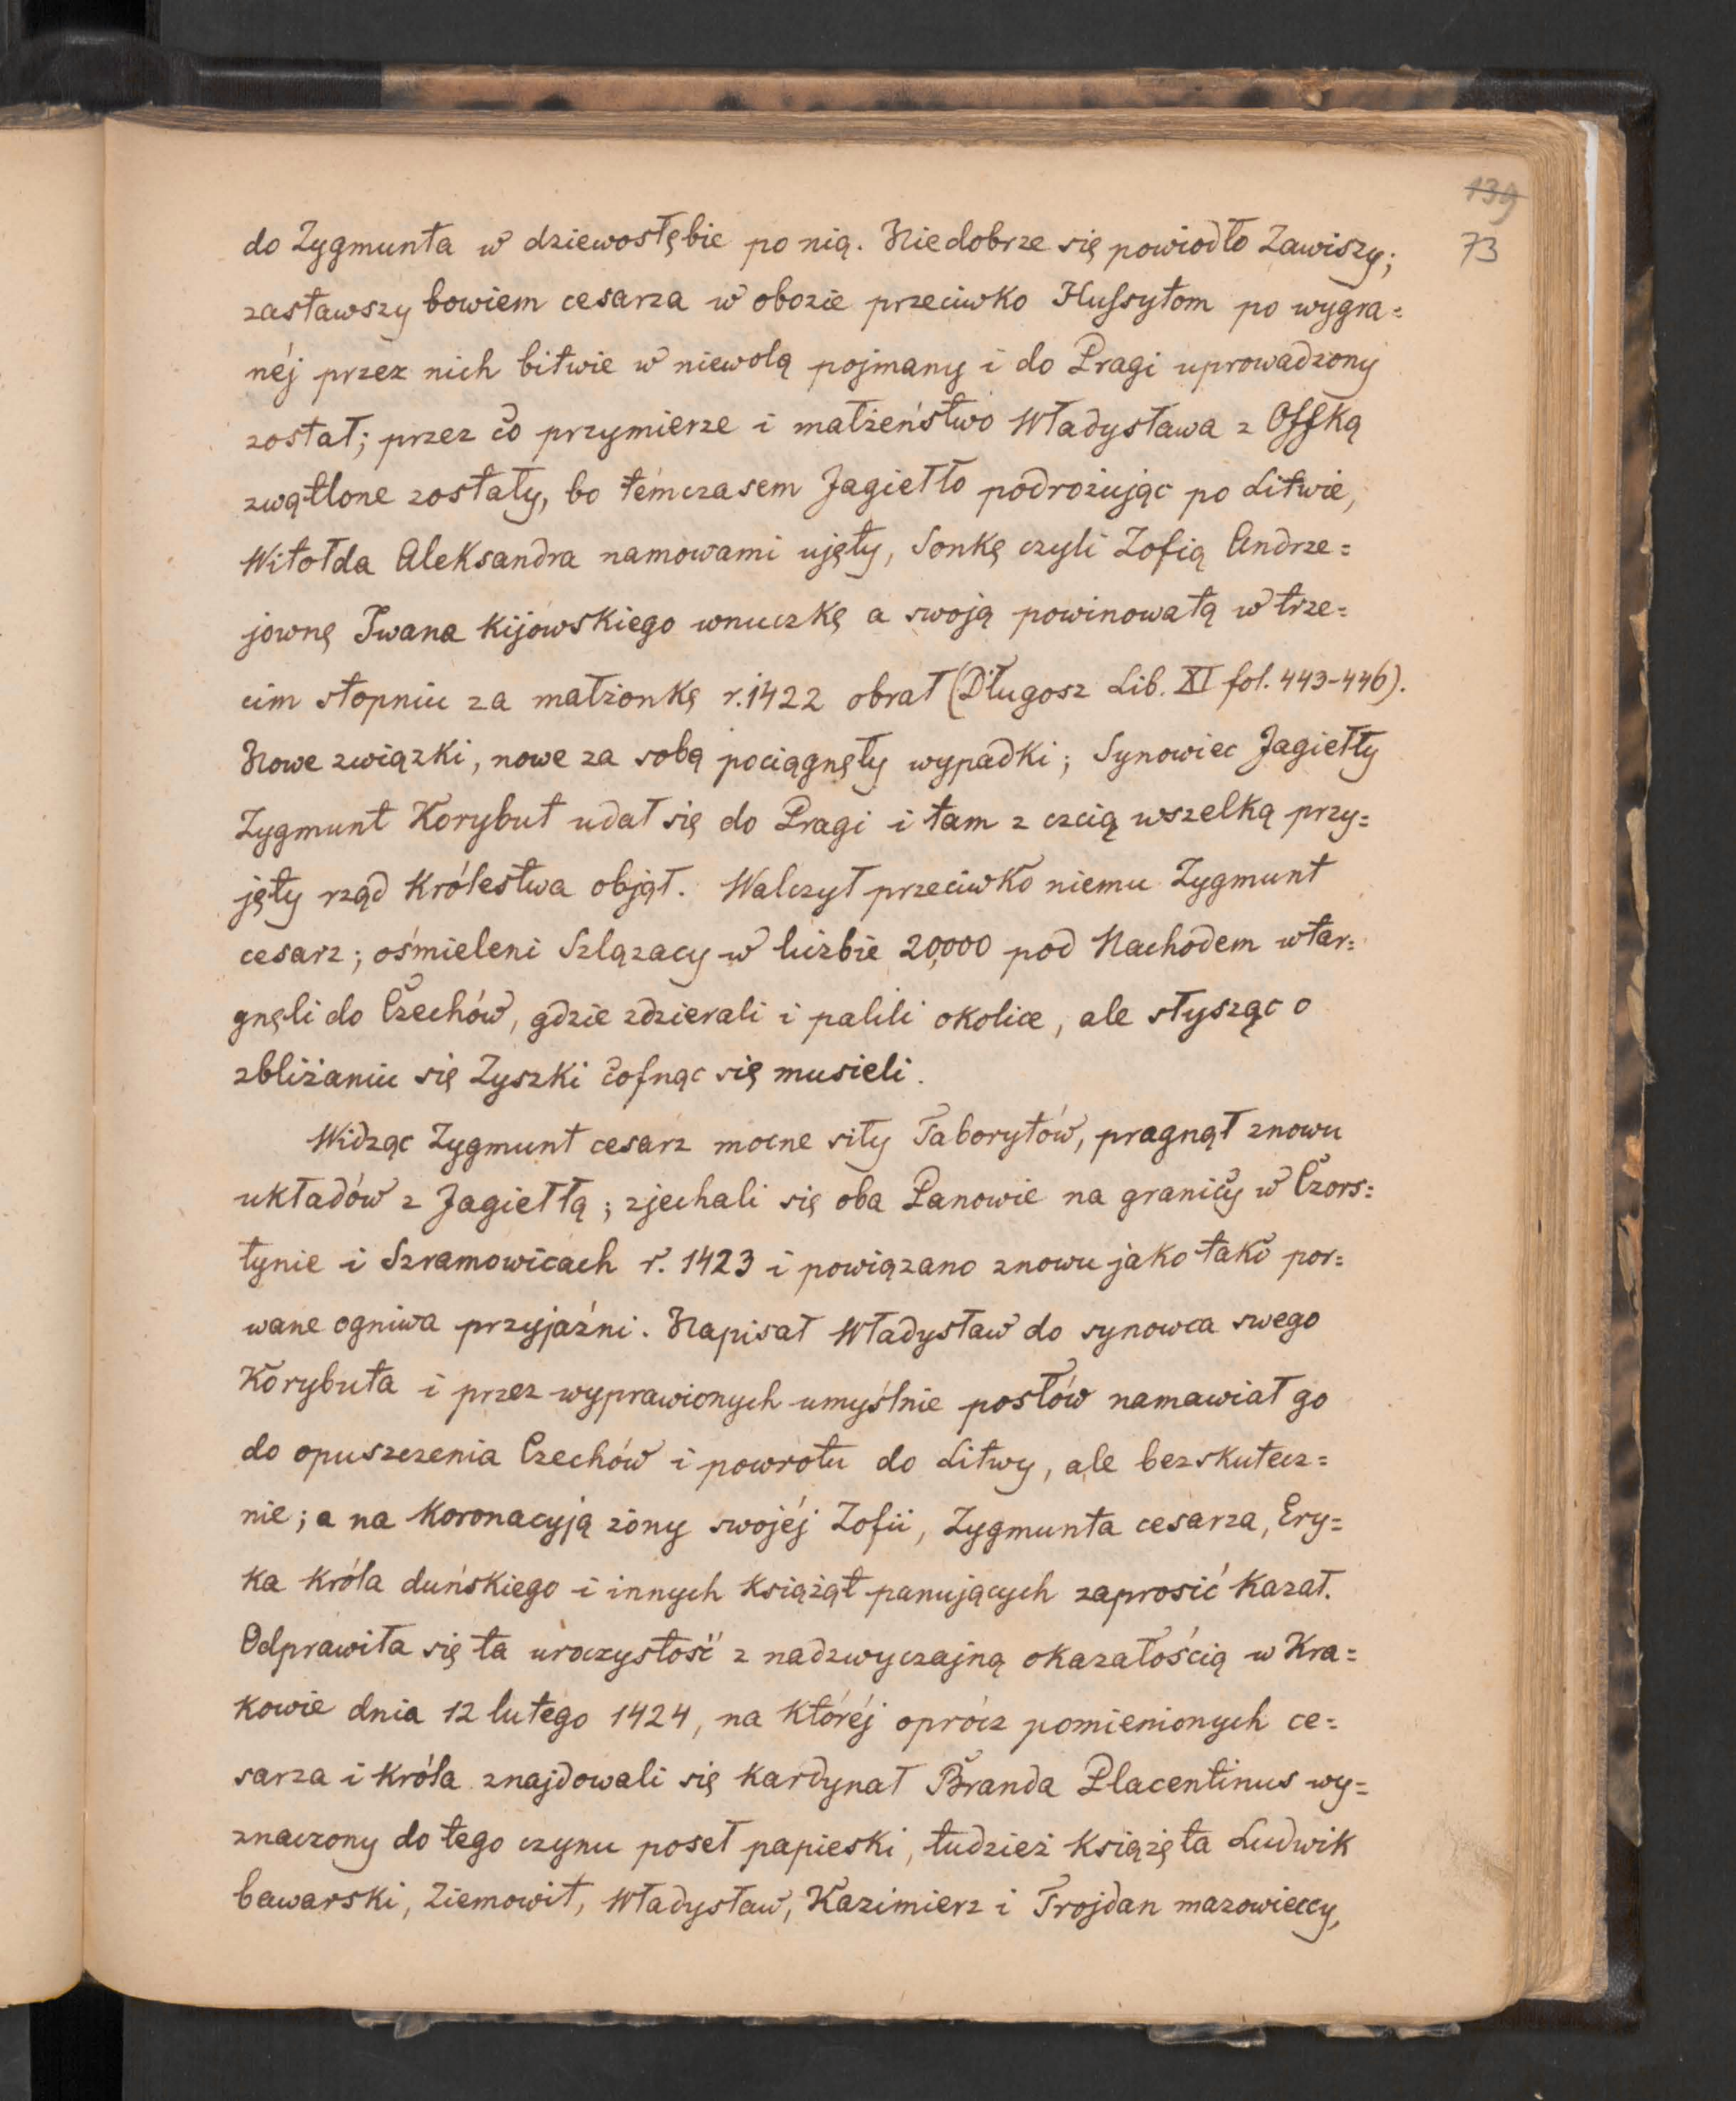 139
73
do Zygmunta w dziewosłębie po nią. Nie dobrze się powiodło Zawiszy;
zastawszy bowiem cesarza w obozie przeciwko Hussytom po wygra=
néj przez nich bitwie w niewolą pojmany i do Pragi uprowadzony
został; przez co przymierze i małżeństwo Władysława z Offką
zwątlone zostały, bo témczasem Jagiełło podrożując po Litwie,
Witołda Aleksandra namowami ujęty, Sonkę czyli Zofią Andrze=
jownę Iwana Kijowskiego wnuczkę a swoją powinowatą w trze=
cim stopniu za małżonkę r. 1422 obrał (Długosz Lib. XI fol. 443-446).
Nowe związki, nowe za sobą pociągnęły wypadki; Synowiec Jagiełły
Zygmunt Korybut udał się do Pragi i tam z czcią wszelką przy=
jęty rząd Królestwa objął. Walczył przeciwko niemu Zygmunt
cesarz; ośmieleni Szlązacy w liczbie 20,000 pod Nachodem wtar=
gnęli do Czechów, gdzie zdzierali i palili okolice, ale słysząc o
zbliżaniu się Zyszki cofnąc się musieli.
Widząc Zygmunt cesarz mocne siły Taborytów, pragnął znowu
układów z Jagiełłą; zjechali się oba Panowie na granicy w Czors=
tynie i Szramowicach r. 1423 i powiązano znowu jako tako por=
wane ogniwa przyjaźni. Napisał Władysław do synowca swego
Korybuta i przez wyprawionych umyślnie posłów namawiał go
do opuszczenia Czechów i powrotu do Litwy, ale bezskutecz=
nie; a na Koronacyją żony swojéj Zofii, Zygmunta cesarza, Ery=
ka Króla duńskiego i innych Książąt panujących zaprosić Kazał.
Odprawiła się ta uroczystość z nadzwyczajną okazałością w Kra=
kowie dnia 12 lutego 1424, na któréj oprócz pomienionych ce=
sarza i Króla znajdowali się Kardynał Branda Placentinus wy=
znaczony do tego czynu poseł papieski, tudzież Książęta Ludwik
bawarski, Ziemowit, Władysław, Kazimierz i Trojdan mazowieccy,